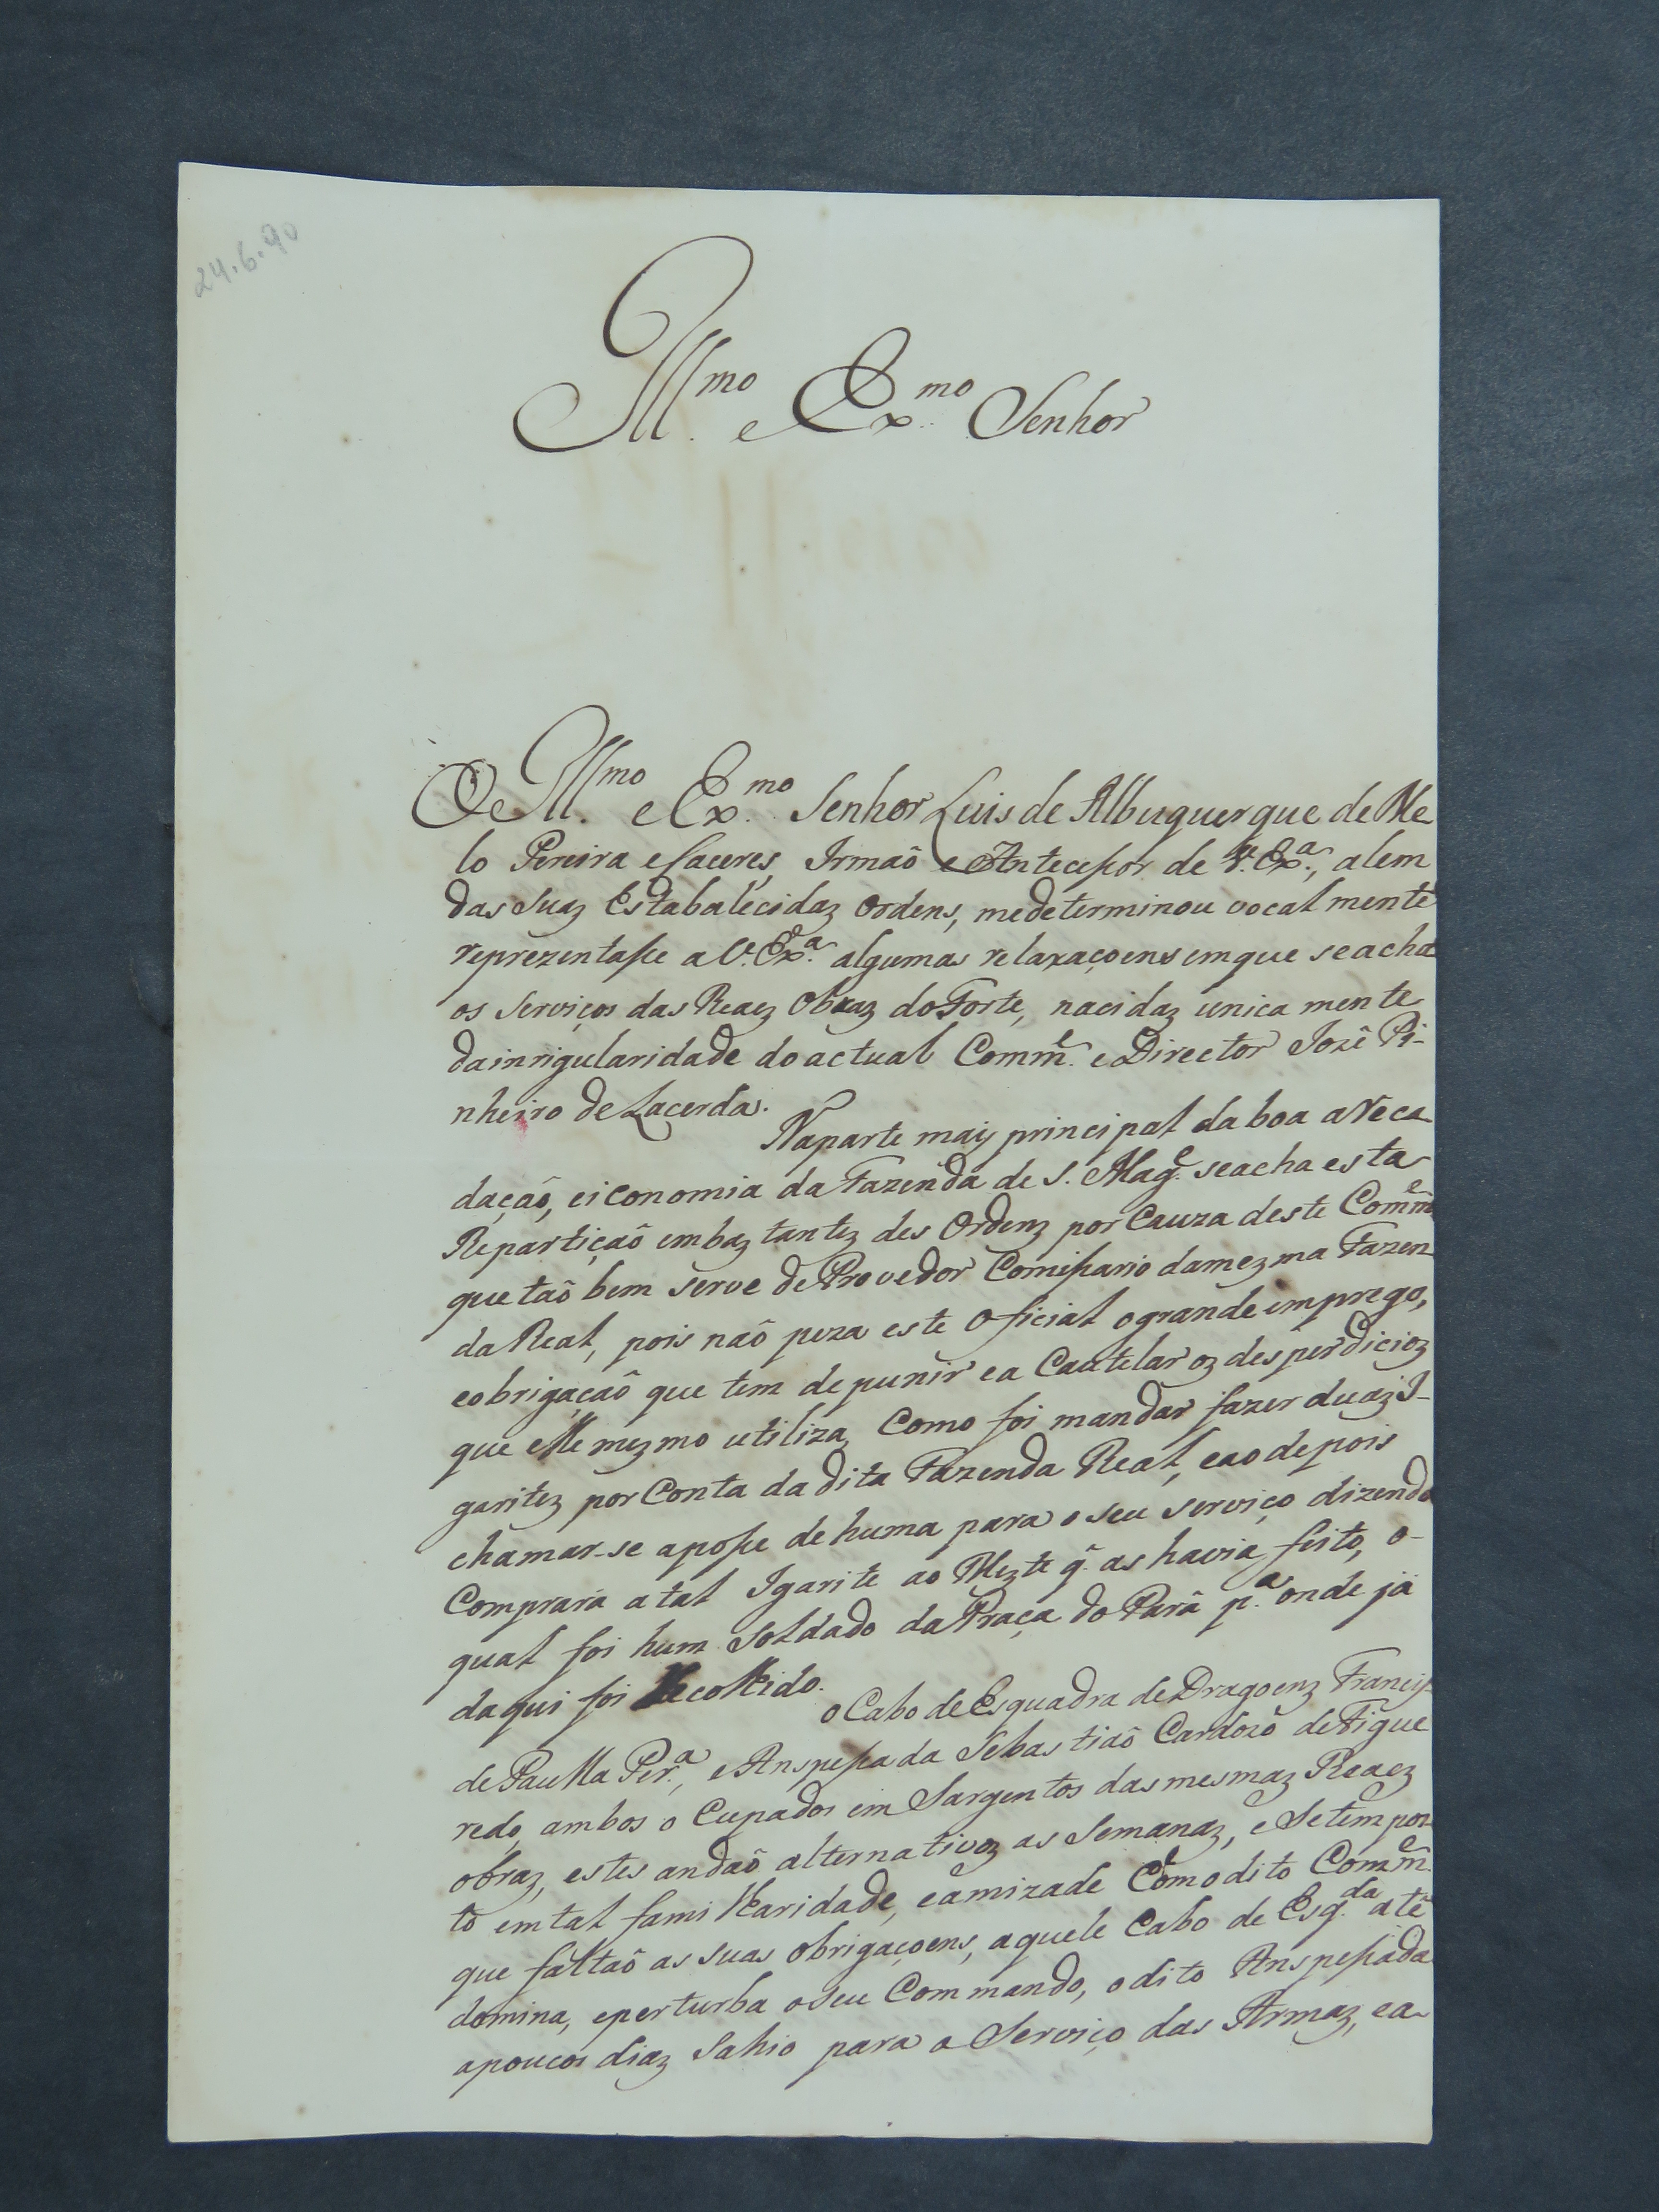 24.6.90
Ill.mo e Ex.mo Senhor
O Ill.mo e Ex.mo Senhor Luis de Albuquerque de Me
lo Pereira e Caceres, Irmaõ e Antecessor de V. Ex.a, alem
das suaz Estabalecidaz Ordens, medeterminou vocal mente
reprezentasse a V. Ex.a algumas relaxaçoens emque seacha
os Serviços das Reaez Obraz do Forte, nacidaz unica mente
dainrigularidade do actual Comm.e e Director Jozê Pi-
nheiro de Lacerda.
Naparte maiz principal da boa aReca
daçaõ, eiconomia da Fazenda de S. Mag.e seacha esta
Repartiçaõ embaz tantez des Ordenz por Cauza deste Comm.e
que taõ bem serve de Provedor Comissario damezma Fazen
da Real, pois naõ peza este Oficial ogrande emprego,
eobrigaçaõ que tem de punir ea Cautelar oz desperdicioz
que elle mezmo utiliza, Como foi mandar fazer duaz I-
garitez por Conta da dita Fazenda Real, eao depois
chamar-se aposse de huma para o seu serviço dizendo
Comprara a tal Igarite ao Mezte q. as havia feito, o-
qual foi hum Soldado da Praça do Parâ p.a onde jâ
daqui foi Recolhido.
O Cabo de Esquadra de Dragoenz Francis
de Paulla Per.a, e Anspessada Sebastiaõ Cardozo de Figue
redo, ambos o Cupados em Sargentos das mesmaz Reaez
obraz, estes andaõ alternativoz as Semanaz, e Setem pos
to emtal familiaridade, eamizade Como dito Comm.e
que faltaõ as suas obrigaçoens, aquele Cabo de Esq.da atê
domina, eperturba oseu Commando, odito Anspessada
apoucos diaz Sahio para o Serviço das Armaz, ea